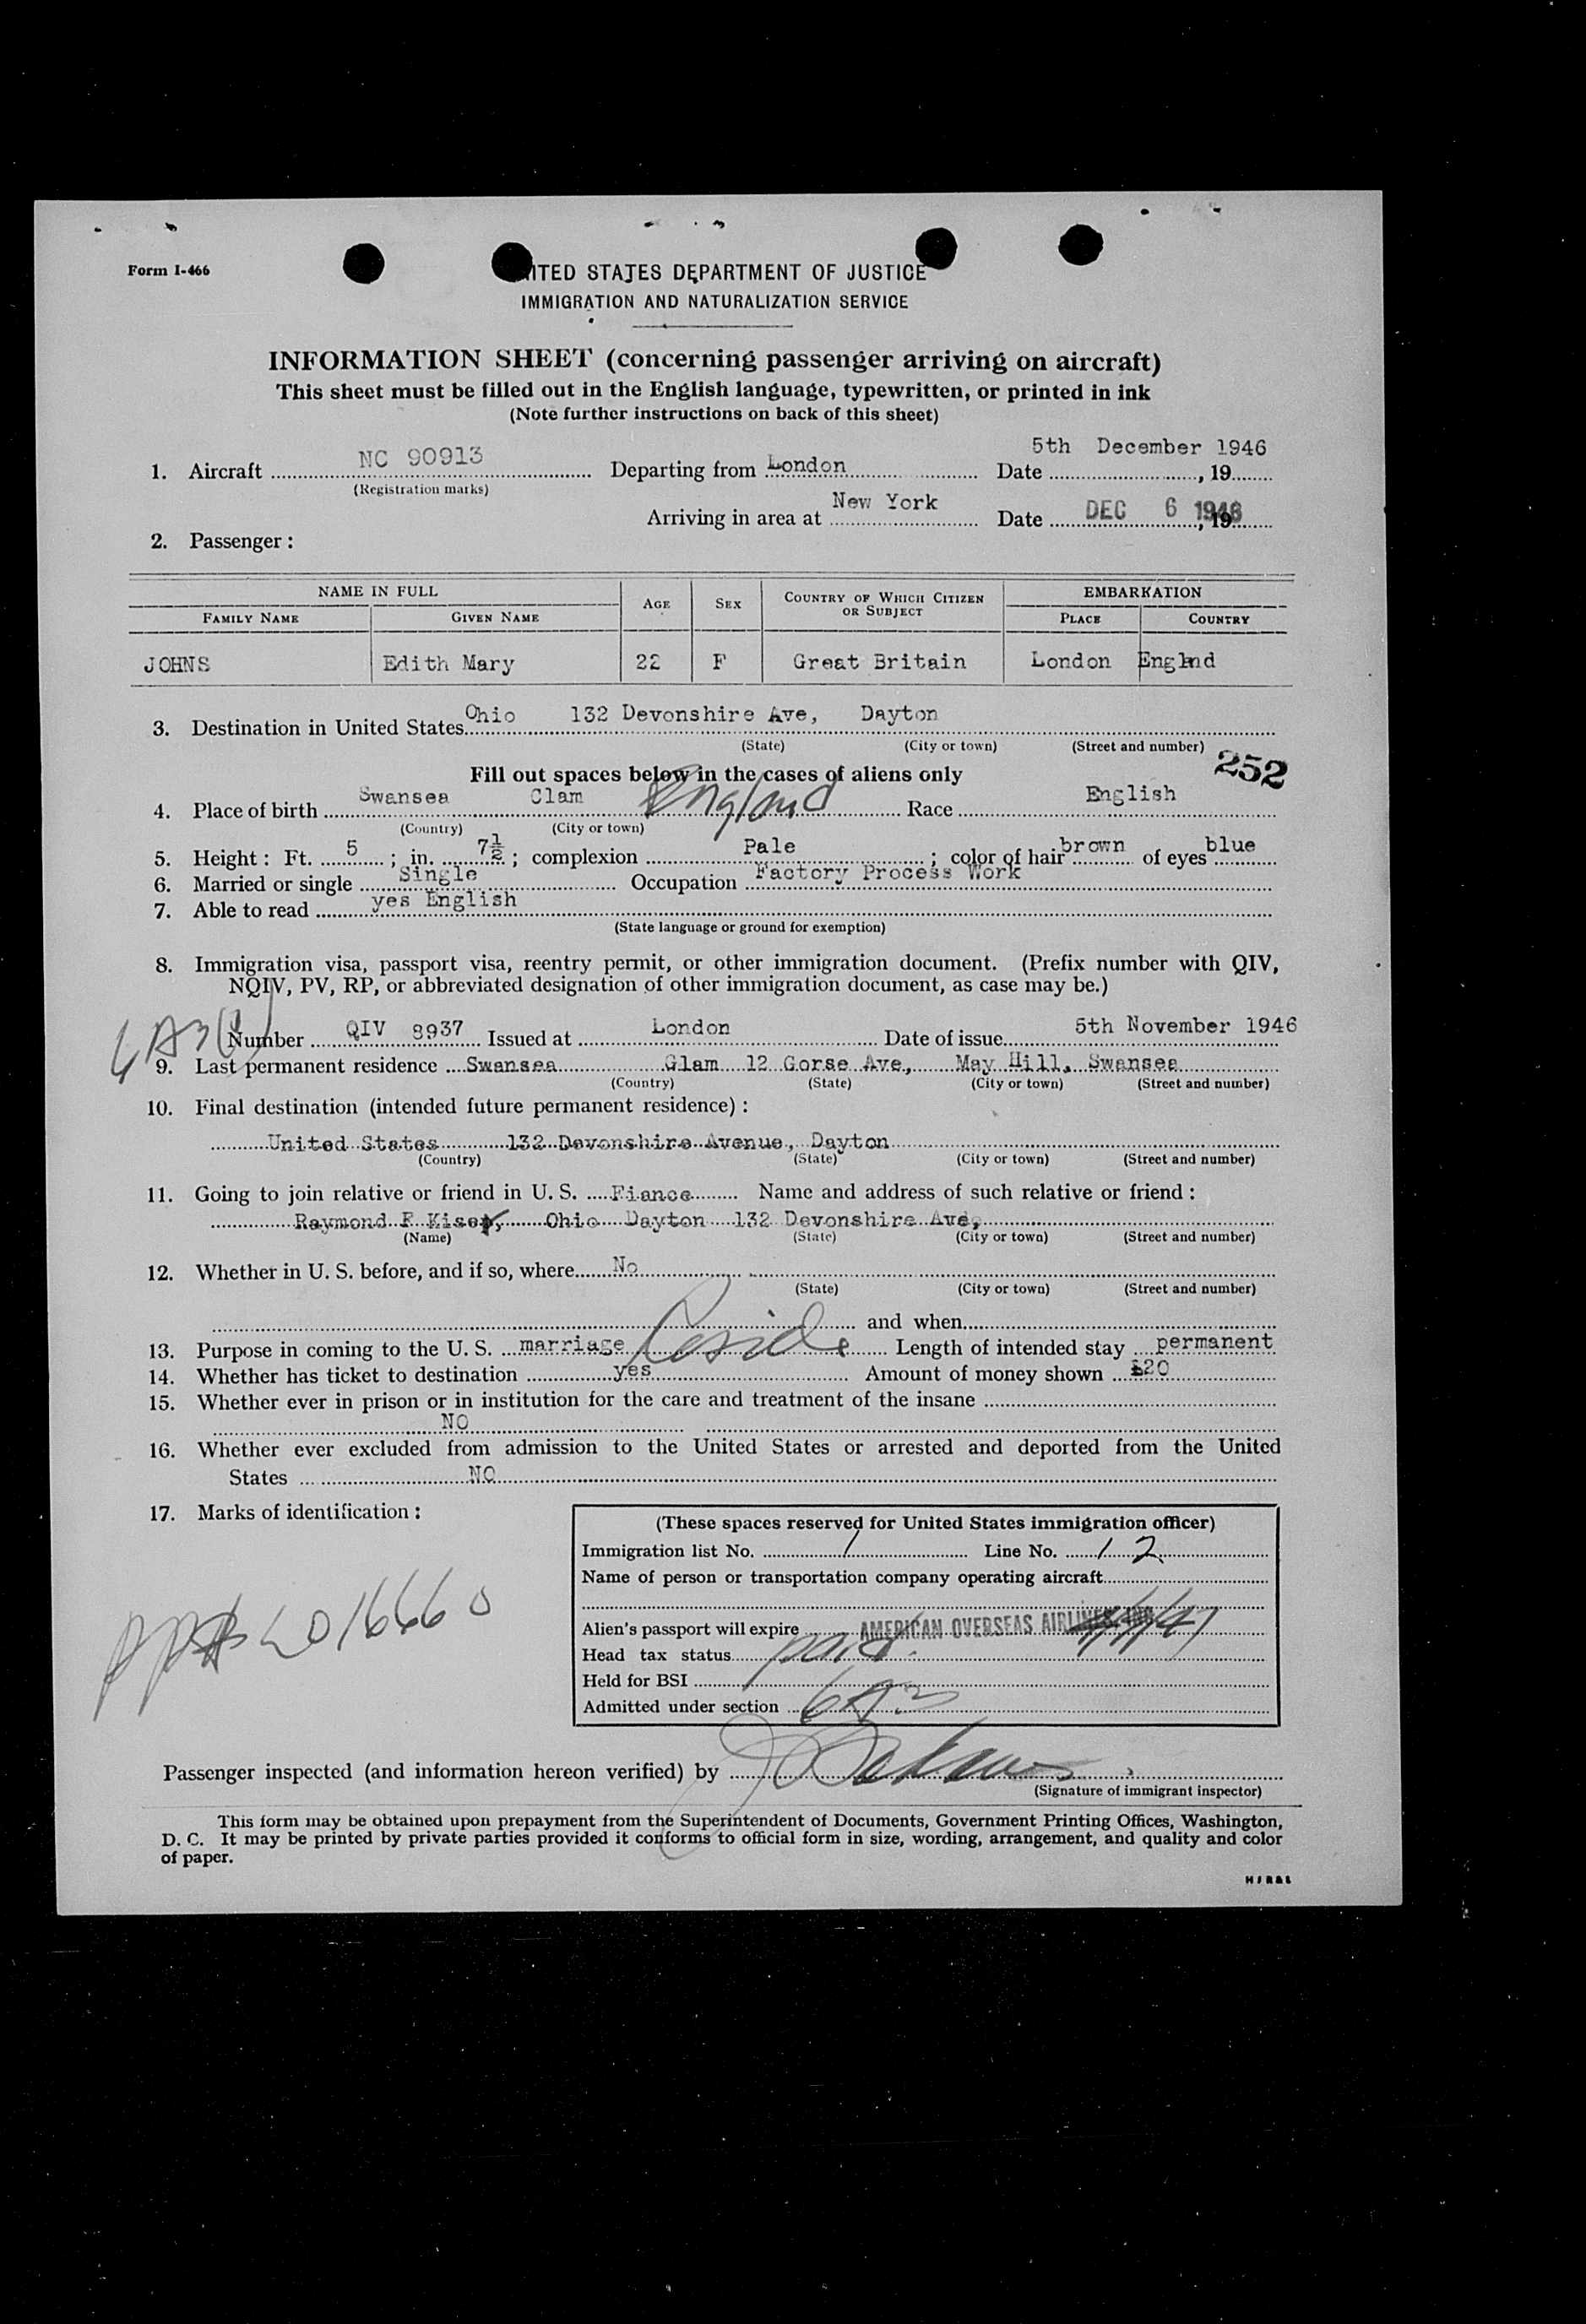 Form I-466
UNITED STATES DEPARTMENT OF JUSTICE
IMMIGRATION AND NATURALIZATION SERVICE
INFORMATION SHEET (concerning passenger arriving on aircraft)
This sheet must be filled out in the English language, typewritten, or printed in ink
(Note further instructions on back of this sheet)
1. Aircraft NC 90913 Departing from London Date 5th December 1946, 19
(Registration marks)
Arriving in area at New York Date DEC 6 1946, 19
2. Passenger:
NAME IN FULL AGE SEX COUNTRY OF WHICH CITIZEN OR SUBJECT EMBARKATION
FAMILY NAME GIVEN NAME PLACE COUNTRY
JOHNS Edith Mary 22 F Great Britain London Englnd
3. Destination in United States Ohio 132 Devonshire Ave, Dayton
(State) (City or town) (Street and number)
252
Fill out spaces below in the cases of aliens only
4. Place of birth Swansea Clam England Race English
(Country) (City or town)
5. Height: Ft. 5; in. 7½; complexion Pale; color of hair brown of eyes blue
6. Married or single Single Occupation Factory Process Work
7. Able to read yes English
(State language or ground for exemption)
8. Immigration visa, passport visa, reentry permit, or other immigration document. (Prefix number with QIV,
NQIV, PV, RP, or abbreviated designation of other immigration document, as case may be.)
Number QIV 8937 Issued at London Date of issue 5th November 1946
9. Last permanent residence Swansea Glam 12 Gorse Ave, May Hill, Swansea
(Country) (State) (City or town) (Street and number)
10. Final destination (intended future permanent residence):
United States 132 Devonshire Avenue, Dayton
(Country) (State) (City or town) (Street and number)
11. Going to join relative or friend in U. S. Fiance Name and address of such relative or friend:
Raymond F Kiser, Ohio Dayton 132 Devonshire Ave,
(Name) (State) (City or town) (Street and number)
12. Whether in U. S. before, and if so, where No
(State) (City or town) (Street and number)
and when
13. Purpose in coming to the U. S. marriage Reside Length of intended stay permanent
14. Whether has ticket to destination yes Amount of money shown £20
15. Whether ever in prison or in institution for the care and treatment of the insane
NO
16. Whether ever excluded from admission to the United States or arrested and deported from the United
States NO
17. Marks of identification:
(These spaces reserved for United States immigration officer)
Immigration list No. 1 Line No. 12
Name of person or transportation company operating aircraft
AMERICAN OVERSEAS AIRLINES INC
Alien's passport will expire
Head tax status paid.
Held for BSI
Admitted under section 6A3
Passenger inspected (and information hereon verified) by
(Signature of immigrant inspector)
This form may be obtained upon prepayment from the Superintendent of Documents, Government Printing Offices, Washington,
D. C. It may be printed by private parties provided it conforms to official form in size, wording, arrangement, and quality and color
of paper.